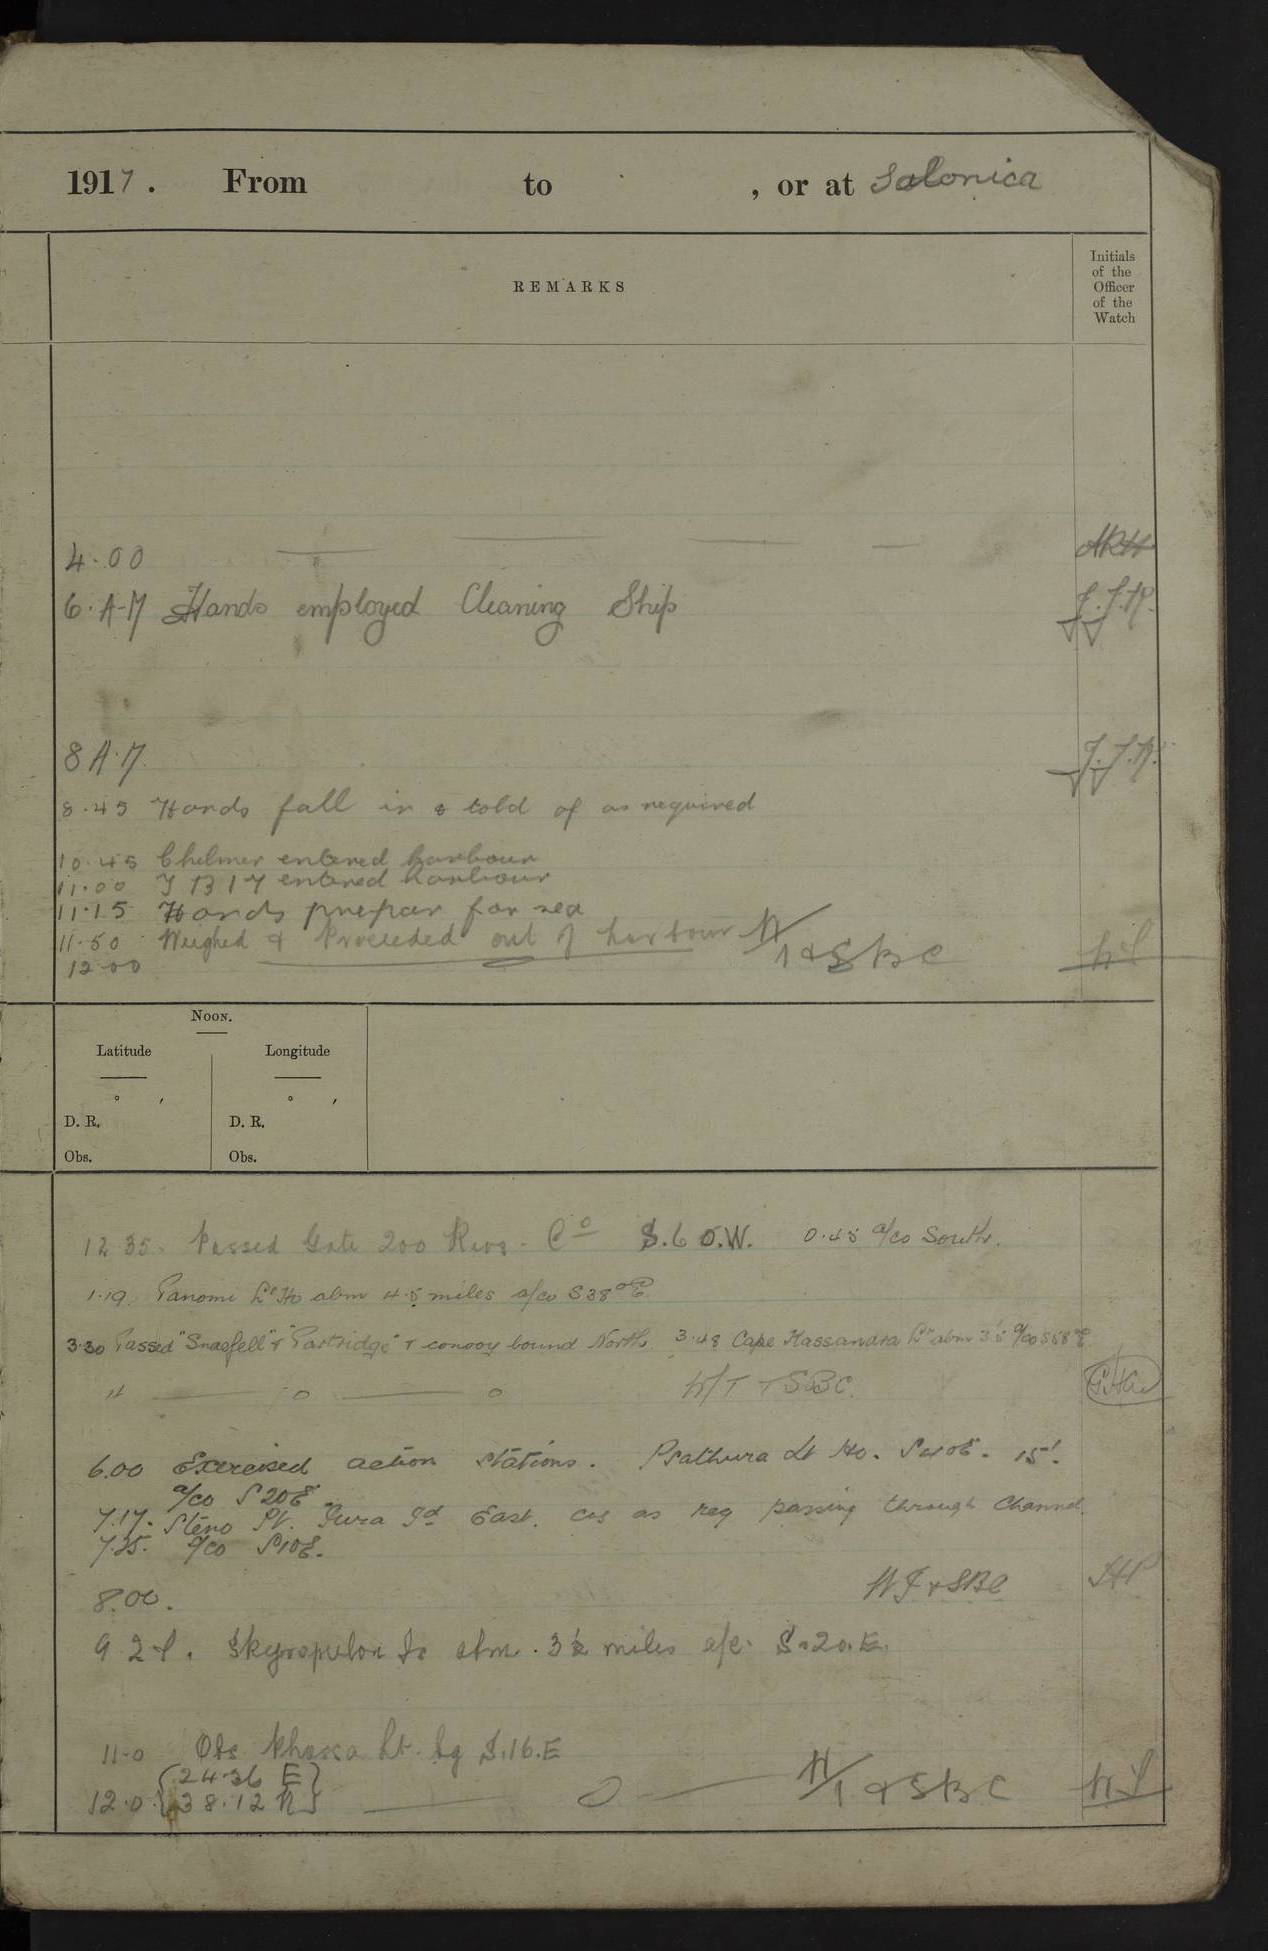 1917. From to , or at Salonica
REMARKS
Initials
of the
Officer
of the
Watch
4.00
6.A-M Hands employed Cleaning Ship J.J.R.
8 A.M. J.J.R.
8.45 Hands fall in & told of as required
10.45 Chelmer entered harbour
11.00 T B 17 entered harbour
11.15 Hands prepar for sea
11.50 Weighed & Proceeded out of harbour
12.00 W/T & SBC
Noon.
Latitude Longitude
° ′ ° ′
D. R. D. R.
Obs. Obs.
12 35. Passed Gate 200 Revs. Co S.60.W. 0.45 a/co South.
1.19. Panomi Lt Ho abm 4.5 miles a/co S38°E
3.30 Passed "Snaefell" & "Partridge" & convoy bound North 3.48 Cape Kassandra Lt abm 3'.5 a/co S58°E
4 o o W/T & SBC.
6.00 Exercised action stations. Psathura Lt Ho. S40E. 15'.
a/co S20E
7.17. Steno Pt. Jura Id East. cos as req passing through Channel.
7.25. a/co S10E.
8.00. W T & SBC
9 21. Skyropulon Is abm. 3½ miles a/c. S.20.E.
11-0 Obs Phassa Lt. bg S.16.E
{24.36 E}
12.0 {38.12 N} O W/T & SBC